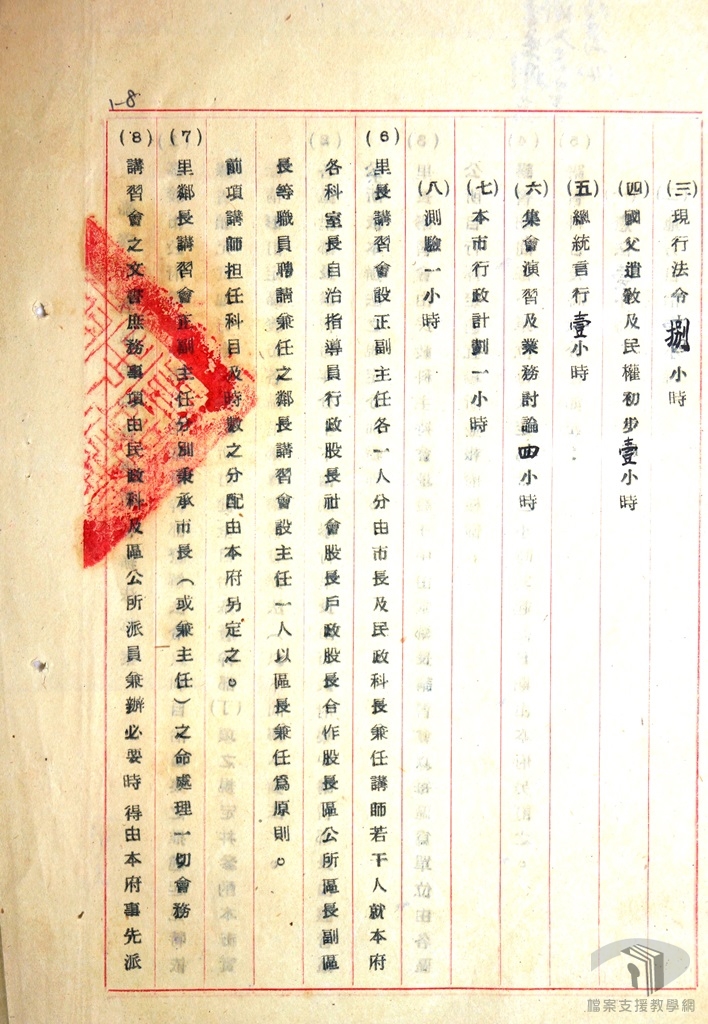 1-8
(三)現行法令捌小時
(四)國父遺敎及民權初步壹小時
(五)總統言行壹小時
(六)集會演習及業務討論四小時
(七)本市行政計劃一小時
(八)測驗一小時
(6)里長講習會設正副主任各一人分由市長及民政科長兼任講師若干人就本府
各科室長自治指導員行政股長社會股長戶政股長合作股長區公所區長副區
長等職員聘請兼任之鄰長講習會設主任一人以區長兼任爲原則。
前項講師担任科目及時數之分配由本府另定之。
(7)里鄰長講習會正副主任分別秉承市長(或兼主任)之命處理一切會務
(8)講習會之文書庶務事項由民政科及區公所派員兼辦必要時得由本府事先派
檔案支援教學網